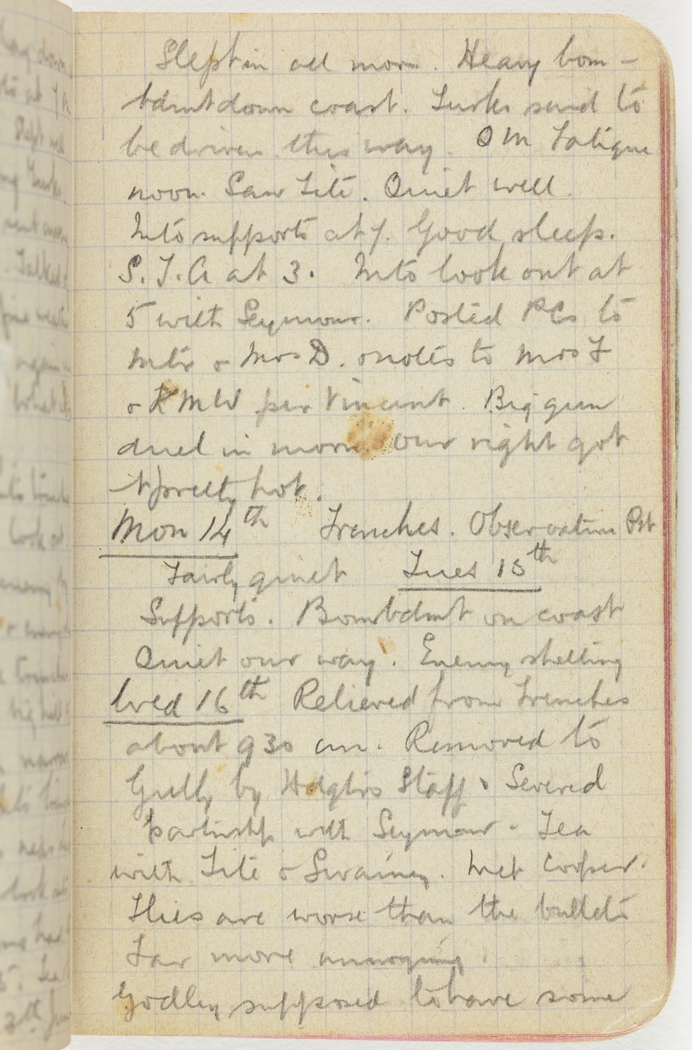 Slept in all morn. Heavy bom-
bdmt down coast. Turks said to
be driven this way. QM Fatigue
noon. Saw Tite. Quiet well.
Into supports at 7. Good sleep.
S. T. A at 3. Into look out at
5 with Seymour. Posted PCs to
Mtr & Mrs D. & notes to Mrs F
& RMW per Vincent. Big gun
duel in morn. our right got
it pretty hot.
Mon 14th Trenches. Observation Pst
Fairly quiet Tues 15th
Supports. Bombdmt on coast
Quiet our way. Enemy shelling
Wed 16th Relieved from Trenches
about 930 am. Removed to
Gully by Hdqtrs Staff. Severed
partnership with Seymour. Tea
with Tite & Swainey. Met Cooper.
Flies are worse than the bullets
Far more annoying.
Godley supposed to have some